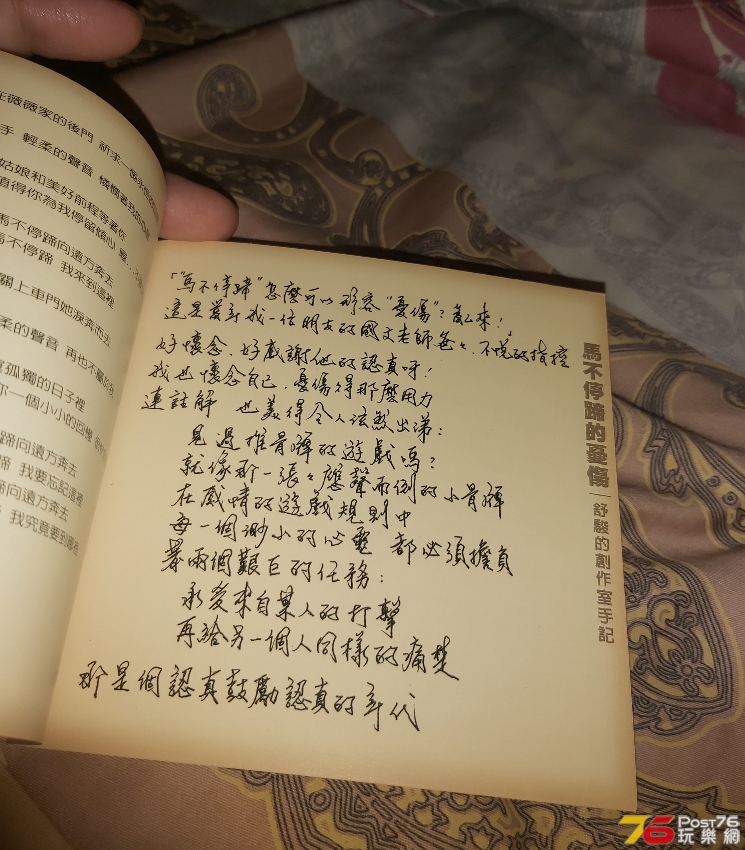 在薇薇家的後門 祈求一個
手 輕柔的聲音
姑娘和美好前程等著你
值得你為我停留傾心
馬不停蹄向遠方奔去
馬不停蹄 我來到這裡
關上車門她淚奔而去
柔的聲音 再也不屬於
孤獨的日子裡
一個小小的回憶
蹄向遠方奔去
蹄 我要忘記這裡
停蹄向遠方奔去
我究竟要到哪裡
「"馬不停蹄"怎麼可以形容"憂傷"?亂來!
這是當年我一位朋友的國文老師爸々,不悅的指控
好懷念、好感謝他的認真呀!
我也懷念自己,憂傷得那麼用力
連註解 也美得令人泫然出涕:
見過推骨牌的遊戲嗎?
就像那一張々應聲而倒的小骨牌
在感情的遊戲規則中
每一個渺小的心靈 都必須擔負
兩個艱巨的任務:
承受來自某人的打擊
再給另一個人同樣的痛楚
那是個認真鼓勵認真的年代
馬不停蹄的憂傷—舒駿的創作室手記
76 Post76
玩樂網